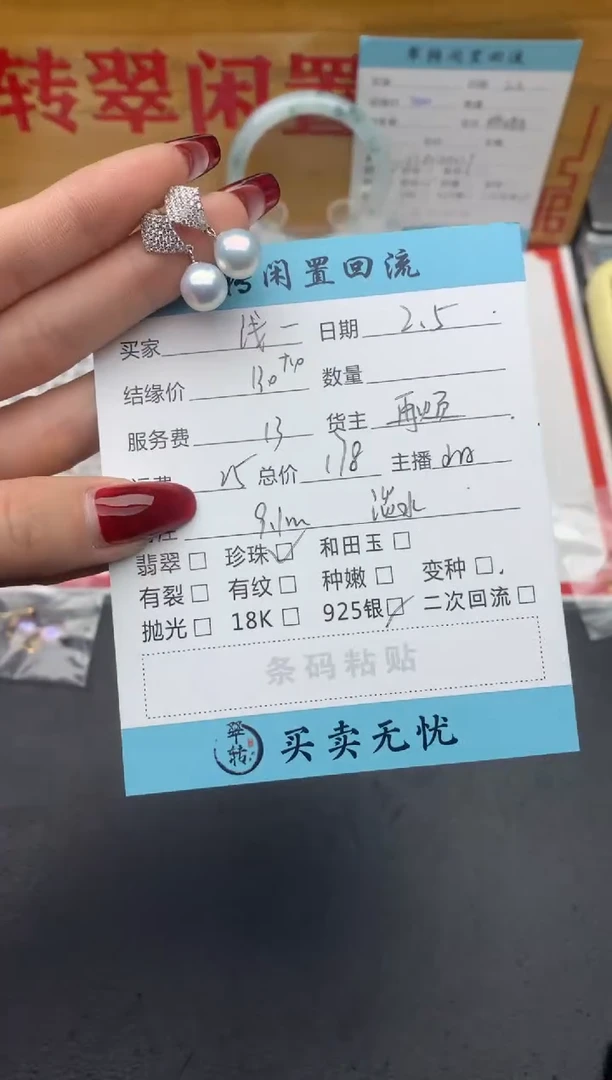 转翠闲置
闲置回流
买家 浅一 日期 2.5
结缘价 130 数量
服务费 13 货主
25 总价 178 主播
9.1m 淡水
翡翠□ 珍珠☑ 和田玉□
有裂□ 有纹□ 种嫩□ 变种□
抛光□ 18K□ 925银☑ 二次回流□
条码粘贴
翠转 买卖无忧